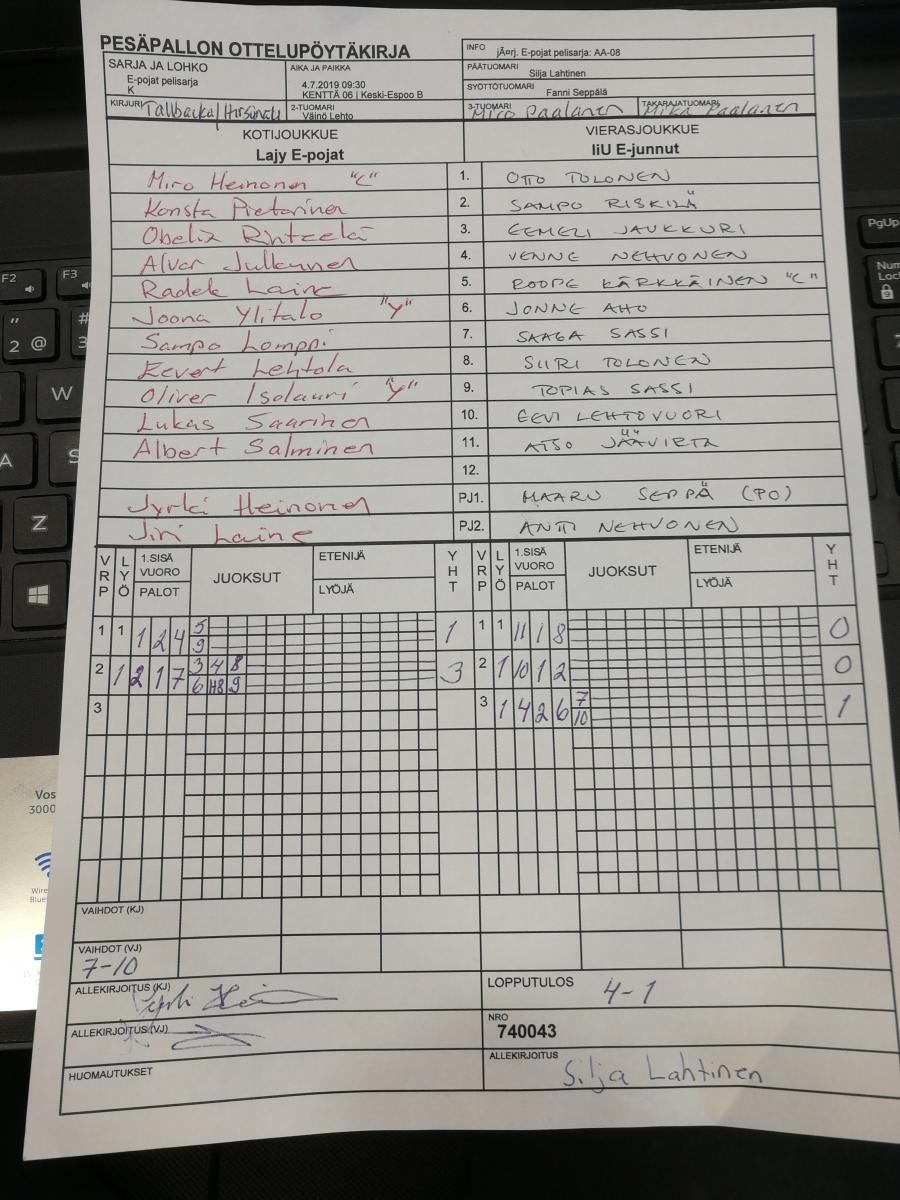 PESÄPALLON OTTELUPÖYTÄKIRJA
INFO jÃ¤rj. E-pojat pelisarja: AA-08
SARJA JA LOHKO
E-pojat pelisarja
K
AIKA JA PAIKKA
4.7.2019 09:30
KENTTÄ 06 | Keski-Espoo B
PÄÄTUOMARI Silja Lahtinen
SYÖTTÖTUOMARI Fanni Seppälä
KIRJURI Tallbacka/
2-TUOMARI Väinö Lehto
3-TUOMARI Miro Paalanen
TAKARAJATUOMARI Mika Paalanen
KOTIJOUKKUE
Lajy E-pojat
VIERASJOUKKUE
IiU E-junnut
Miro Heinonen "C" 1. OTTO TOLONEN
Konsta Pietarinen 2. SAMPO RISKILÄ
Obelix 3. EEMELI JAUKKURI
Alvar Julkunen 4. VENNE NEHVONEN
Radek Laine 5. ROOPE KÄRKKÄINEN "C"
Joona Ylitalo "Y" 6. JONNE AHO
Sampo Lomppi 7. SAAGA SASSI
Eevert Lehtola 8. SIIRI TOLONEN
Oliver Isolauri "Y" 9. TOPIAS SASSI
Lukas Saarinen 10. EEVI LEHTOVUORI
Albert Salminen 11. ATSO
12.
Jyrki Heinonen PJ1. MAARU SEPPÄ (PO)
Jiri Laine PJ2. ANTTI NEHVONEN
VRP LYÖ 1.SISÄ VUORO PALOT JUOKSUT ETENIJÄ LYÖJÄ YHT VRP LYÖ 1.SISÄ VUORO PALOT JUOKSUT ETENIJÄ LYÖJÄ YHT
1 1 1 2 4 5 1 1 1 11 1 8 0
9
2 1 2 1 7 3 4 8 3 2 1 10 1 2 0
6 H8 9
3 3 1 4 2 6 7 1
10
VAIHDOT (KJ)
VAIHDOT (VJ)
7-10
ALLEKIRJOITUS (KJ)
LOPPUTULOS 4-1
ALLEKIRJOITUS (VJ)
NRO
740043
HUOMAUTUKSET
ALLEKIRJOITUS
Silja Lahtinen
F2
F3
2 @
W
A
S
Z
PgUp
Num
Lock
9
Vos
3000